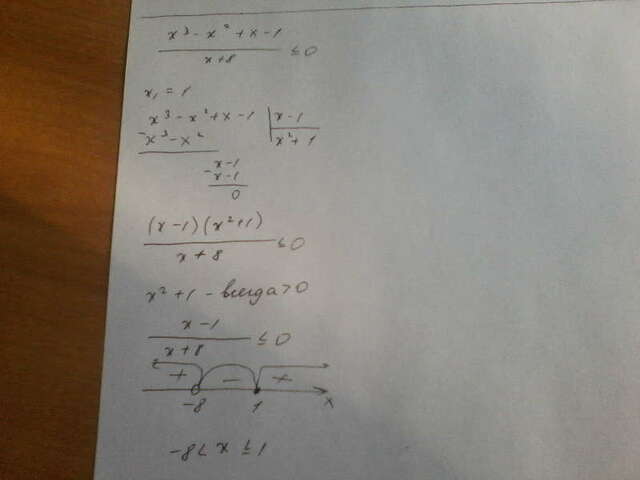 x³ - x² + x - 1
x+8 ≤ 0
x₁ = 1
x³ - x² + x - 1 | x - 1
- x³ - x² | x² + 1
x - 1
- x - 1
0
(x - 1)(x² + 1)
x + 8 ≤ 0
x² + 1 - всегда > 0
x - 1
x + 8 ≤ 0
+ - +
-8 1 x
-8 < x ≤ 1